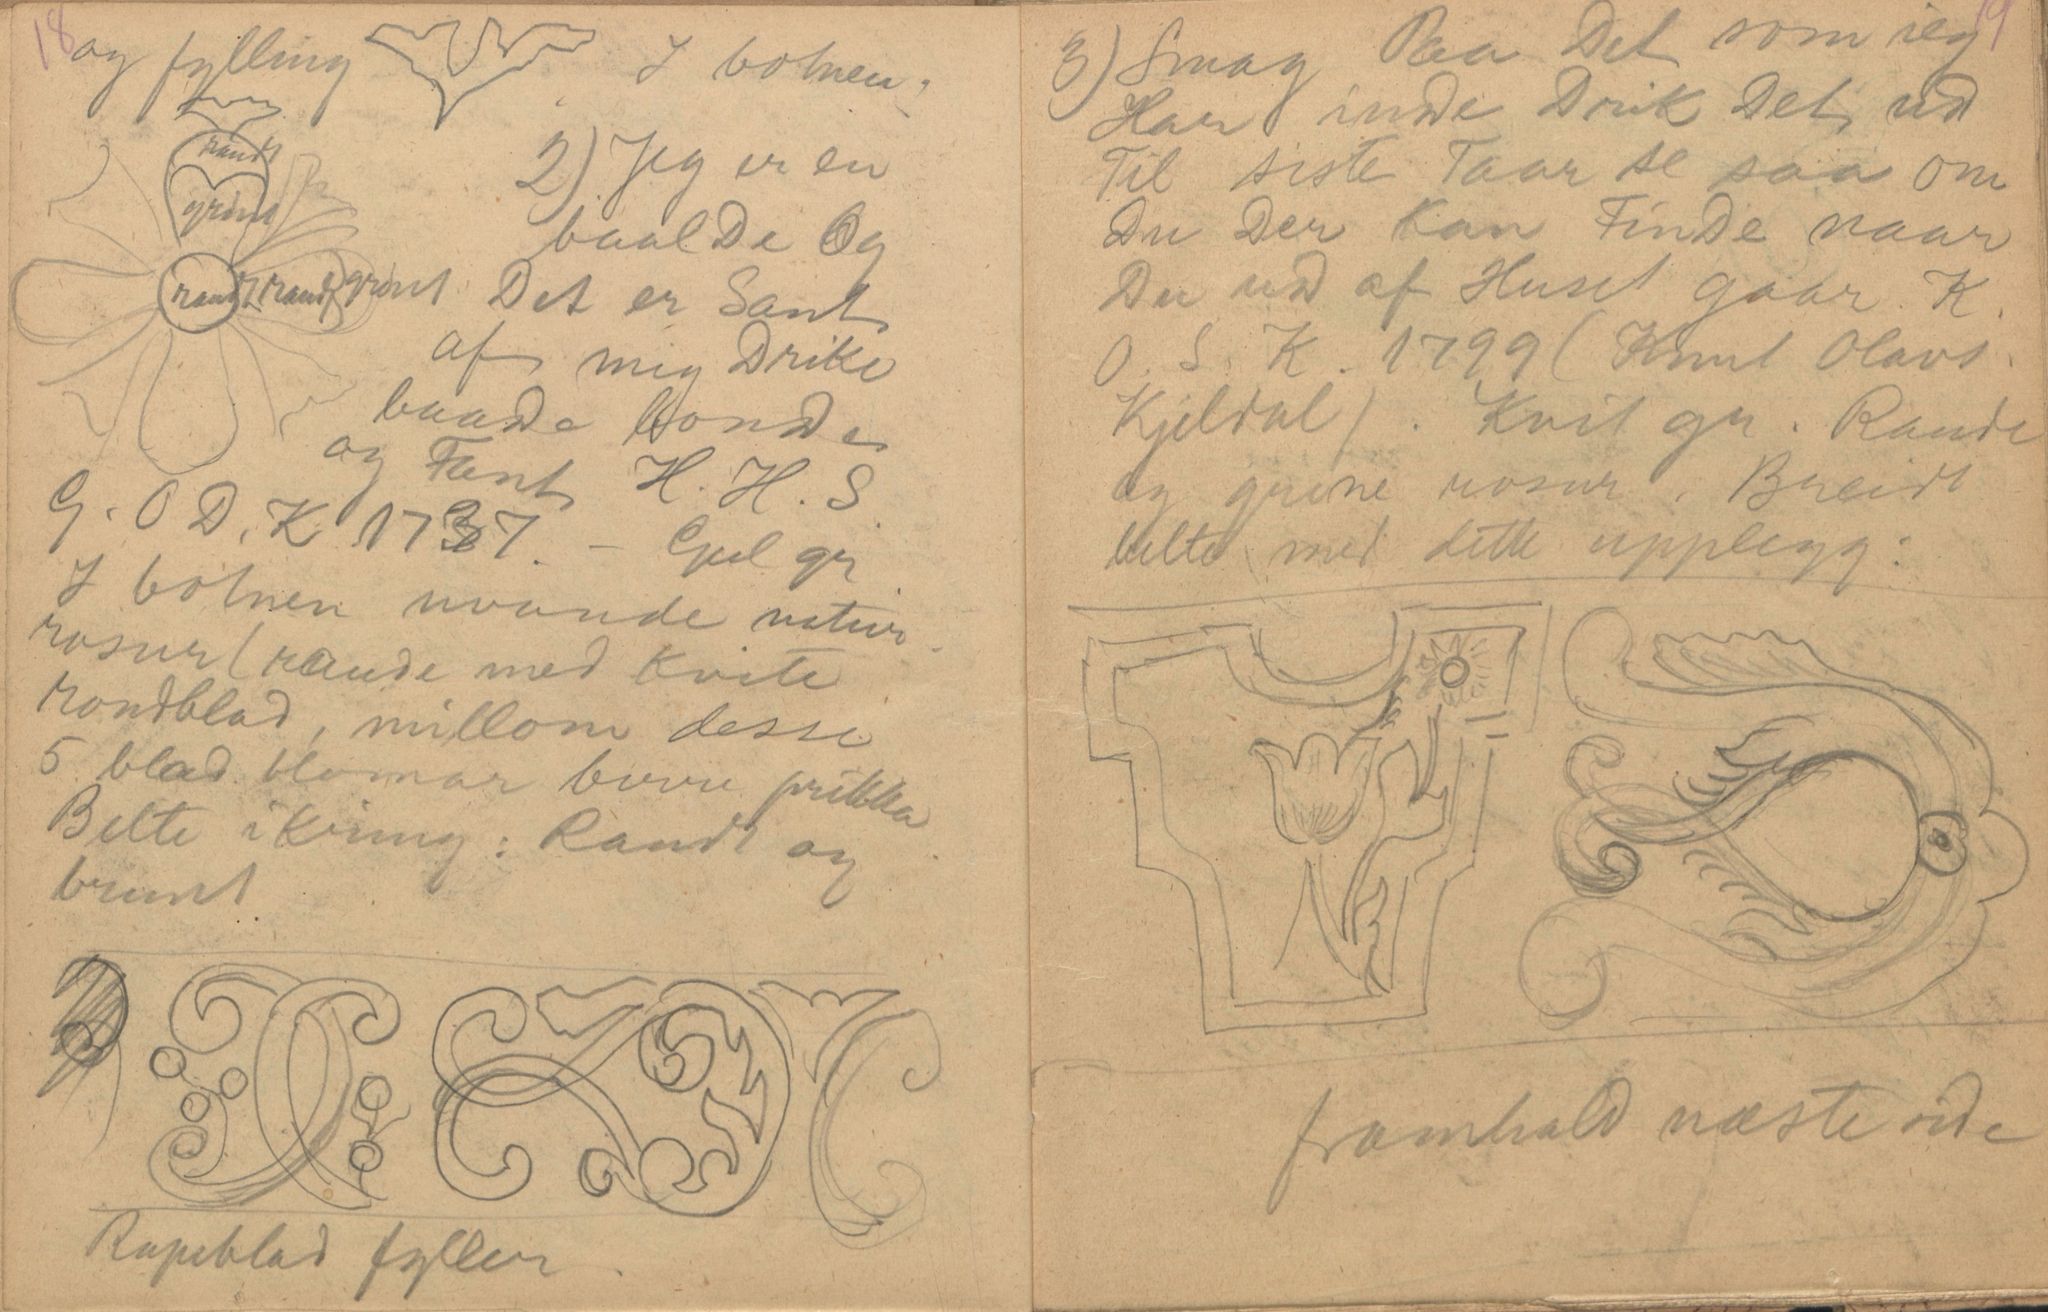 18
og fylling I botnen.
raudt
grønt
raudt raudt grønt
2) Jeg er en
baal De Og
Det er Sant
af mig Drike
baade bonde
og Fant H. H. S.
G. O D. K 1737. – Gul gr
I botnen
rosur (raude med kvite
rondblad, millom desse
5 blad blomar berre prikka
Belte ikring: Raudt og
brunt
Rapeblad fyller.
19
3) Smag Paa Det som ieg
Har inde Drik Det ud
Til siste Taar se saa om
Du Der kan Finde naar
Du ud af Huset gaar K.
O. S. K. 1799 (Knut Olavs.
Kjeldal). Kvit gr. Raude
og grøne rosur. Breidt
belte med dette upplegg:
framhald næste side